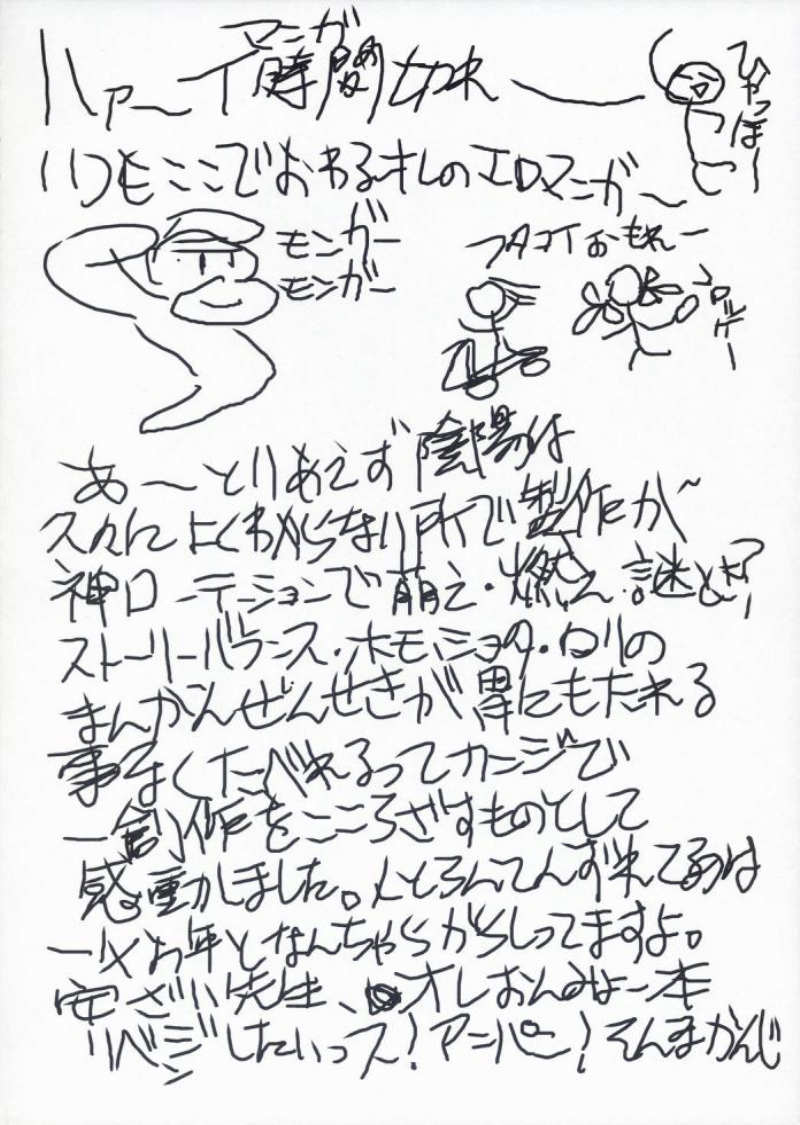 ハァーイ時間切れ
マンガ
ひゃっほー
いつもここでおわるオレのエロマンガー
モンガー
モンガー
フタコイおもれー
コロッケー
あーとりあえず陰陽は
久々によくわからない所で製作が
神ローテーションで萌え・燃え・謎とき?
ストーリーバランス・ホモ・ショタ・ロリの
まんかんぜんせきが胃にもたれる
事なくたべれるってカンジで
一創作をこころざすものとして
感動しました。
一父お年となんちゃらがらしってますよ。
安ざい先生、オレおんみょー本
リベンジしたいっス!アニパー!そんなかんじ